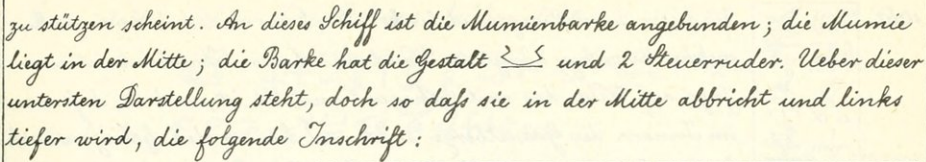 zu stützen scheint. An dieses Schiff ist die Mumienbarke angebunden; die Mumie
liegt in der Mitte; die Barke hat die Gestalt und 2 Steuerruder. Ueber dieser
untersten Darstellung steht, doch so daſs sie in der Mitte abbricht und links
tiefer wird, die folgende Inschrift: